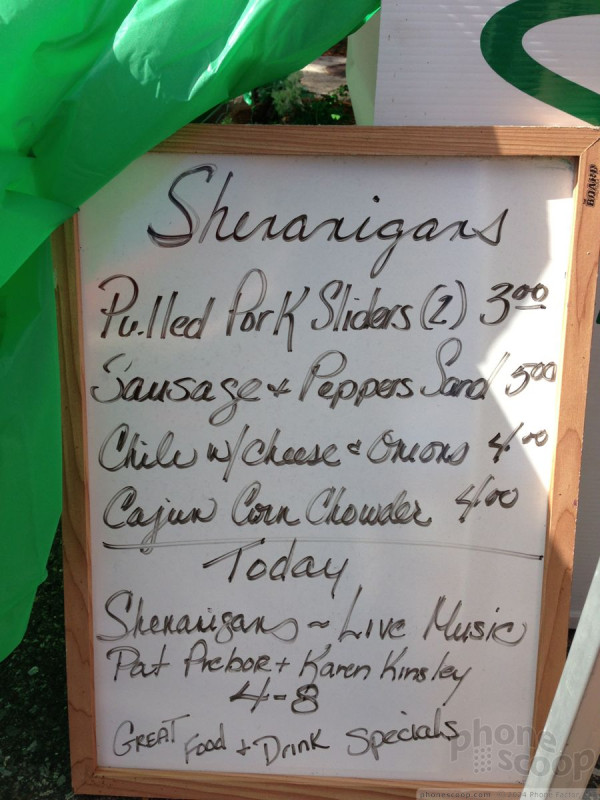 Shenanigans
Pulled Pork Sliders (2) 3.00
Sausage + Peppers Sand 5.00
Chile w/ cheese + Onions 4.00
Cajun Corn Chowder 4.00
Today
Shenanigans ~ Live Music
Pat + Karen Kinsley
4-8
GREAT Food + Drink Specials
BOARD
phone scoop
phonescoop.com